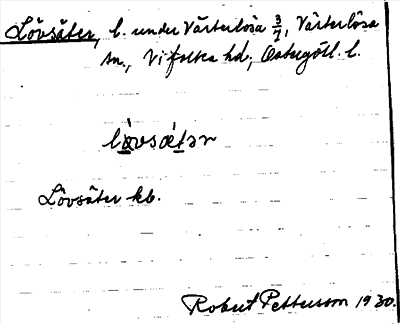 Lövsäter, l. under Västerlösa 3/4, Västerlösa
sn., Vifolka hd., Östergötl. l.
Lövsäter kb.
Robert Pettersson 1930.